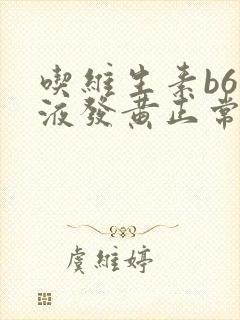 喫維生素b6
液發黃正常
虞維婷